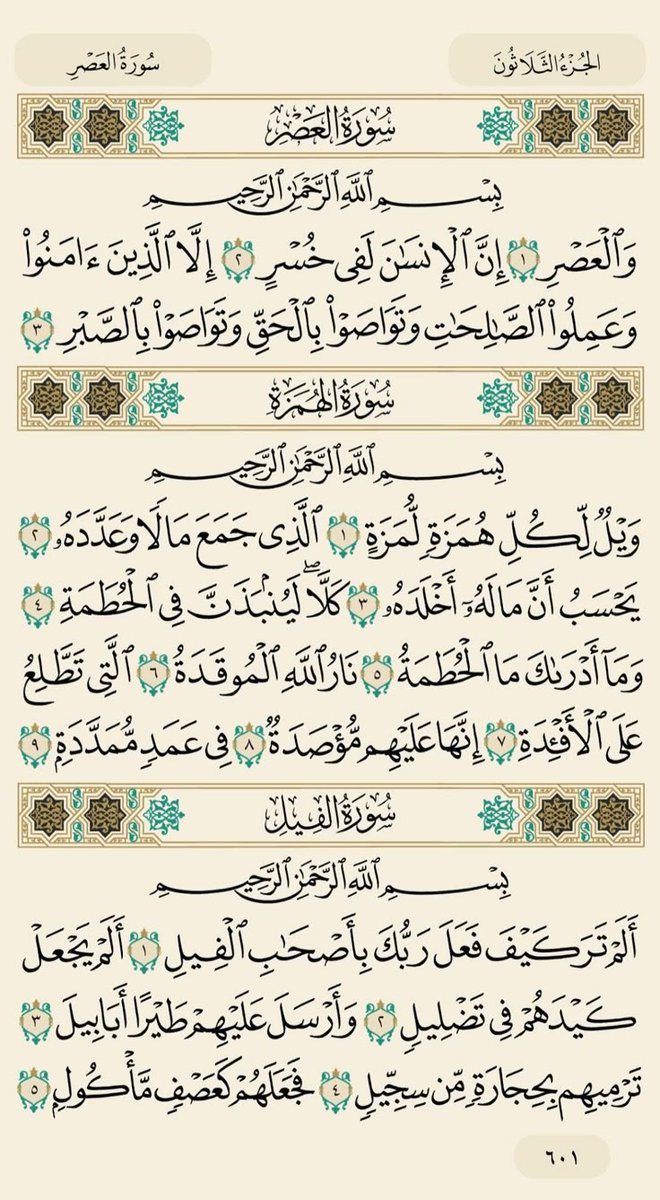 الجُزْءُ الثَّلَاثُونَ
سُورَةُ العَصْرِ
سُورَةُ العَصْرِ
بِسْمِ ٱللَّهِ ٱلرَّحْمَٰنِ ٱلرَّحِيمِ
وَٱلْعَصْرِ ١ إِنَّ ٱلْإِنسَٰنَ لَفِى خُسْرٍ ٢ إِلَّا ٱلَّذِينَ ءَامَنُوا۟
وَعَمِلُوا۟ ٱلصَّٰلِحَٰتِ وَتَوَاصَوْا۟ بِٱلْحَقِّ وَتَوَاصَوْا۟ بِٱلصَّبْرِ ٣
سُورَةُ الهُمَزَةِ
بِسْمِ ٱللَّهِ ٱلرَّحْمَٰنِ ٱلرَّحِيمِ
وَيْلٌ لِّكُلِّ هُمَزَةٍ لُّمَزَةٍ ١ ٱلَّذِى جَمَعَ مَالًا وَعَدَّدَهُۥ ٢
يَحْسَبُ أَنَّ مَالَهُۥٓ أَخْلَدَهُۥ ٣ كَلَّا ۖ لَيُنۢبَذَنَّ فِى ٱلْحُطَمَةِ ٤
وَمَآ أَدْرَىٰكَ مَا ٱلْحُطَمَةُ ٥ نَارُ ٱللَّهِ ٱلْمُوقَدَةُ ٦ ٱلَّتِى تَطَّلِعُ
عَلَى ٱلْأَفْـِٔدَةِ ٧ إِنَّهَا عَلَيْهِم مُّؤْصَدَةٌ ٨ فِى عَمَدٍ مُّمَدَّدَةٍۭ ٩
سُورَةُ الفِيلِ
بِسْمِ ٱللَّهِ ٱلرَّحْمَٰنِ ٱلرَّحِيمِ
أَلَمْ تَرَ كَيْفَ فَعَلَ رَبُّكَ بِأَصْحَٰبِ ٱلْفِيلِ ١ أَلَمْ يَجْعَلْ
كَيْدَهُمْ فِى تَضْلِيلٍ ٢ وَأَرْسَلَ عَلَيْهِمْ طَيْرًا أَبَابِيلَ ٣
تَرْمِيهِم بِحِجَارَةٍ مِّن سِجِّيلٍ ٤ فَجَعَلَهُمْ كَعَصْفٍ مَّأْكُولٍۭ ٥
٦٠١